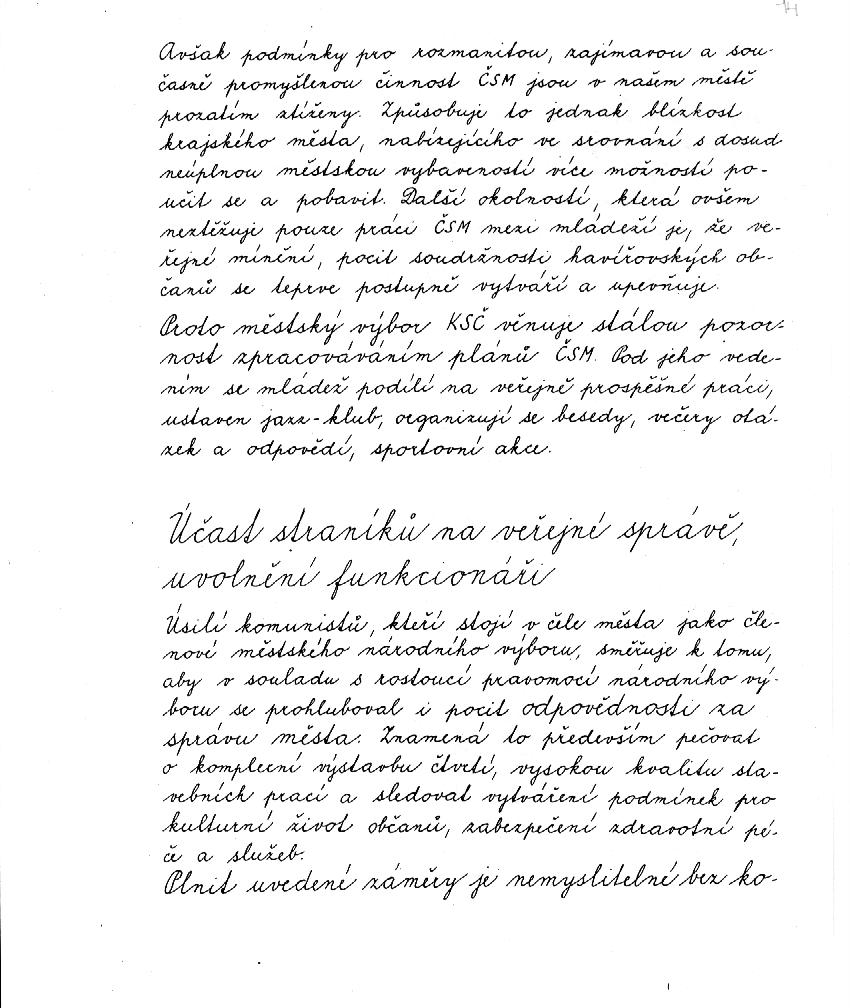 14
Avšak podmínky pro rozmanitou, zajímavou a sou-
časně promyšlenou činnost ČSM jsou v našem městě
prozatím ztíženy. Způsobuje to jednak blízkost
krajského města, nabízejícího ve srovnání s dosud
neúplnou městskou vybaveností více možností po-
učit se a pobavit. Další okolností, která ovšem
neztěžuje pouze práci ČSM mezi mládeží je, že ve-
řejné mínění, pocit soudržnosti havířovských ob-
čanů se teprve postupně vytváří a upevňuje.
Proto městský výbor KSČ věnuje stálou pozor-
nost zpracováváním plánů ČSM. Pod jeho vede-
ním se mládež podílí na veřejně prospěšné práci,
ustaven jazz-klub, organizují se besedy, večery otá-
zek a odpovědí, sportovní akce.
Účast straníků na veřejné správě,
uvolnění funkcionáři
Úsilí komunistů, kteří stojí v čele města jako čle-
nové městského národního výboru, směřuje k tomu,
aby v souladu s rostoucí pravomocí národního vý-
boru se prohluboval i pocit odpovědnosti za
správu města. Znamená to především pečovat
o komplecní výstavbu čtvrtí, vysokou kvalitu sta-
vebních prací a sledovat vytváření podmínek pro
kulturní život občanů, zabezpečení zdravotní pé-
če a služeb.
Plnit uvedené záměry je nemyslitelné bez ko-